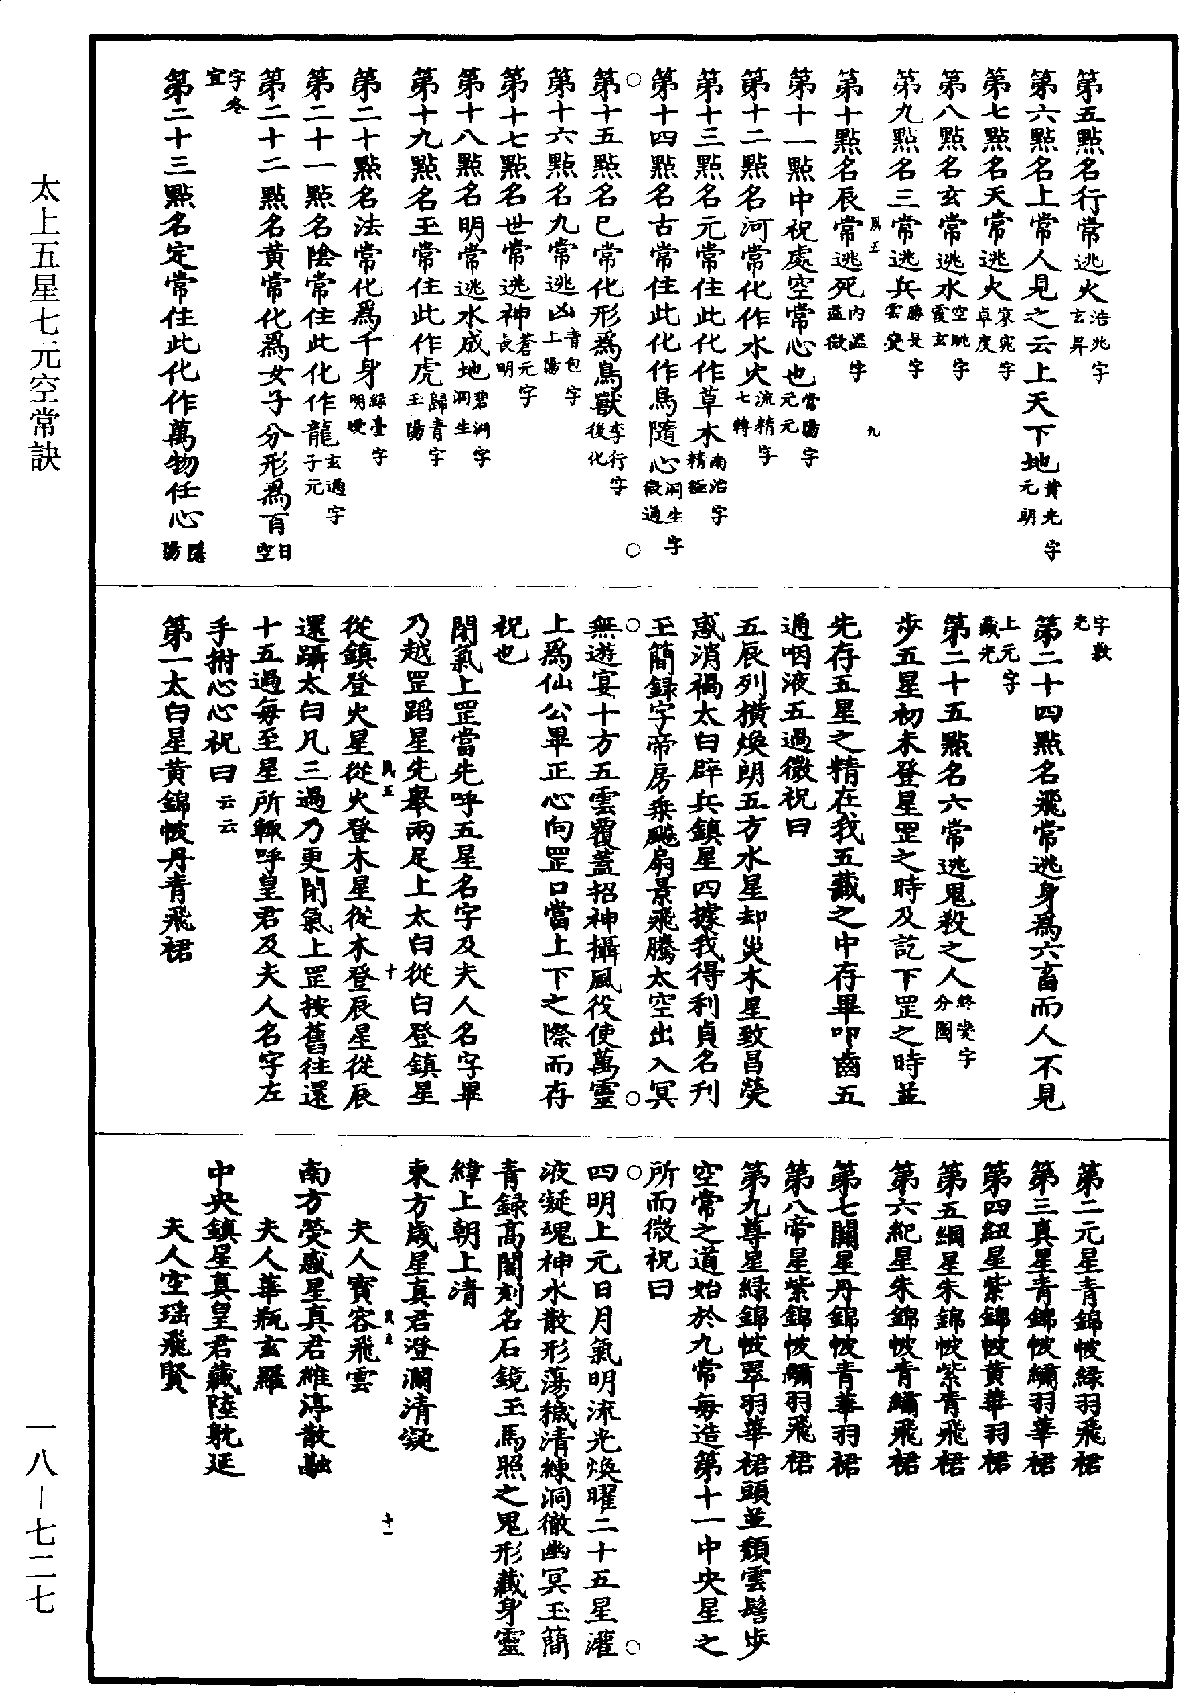 第五點名行常逃火治兆字玄昇
第六點名上常人見之云上天下地黃光字元明
第七點名天常逃火寂寞字卓度
第八點名玄常逃水空眺字霞玄
第九點名三常逃兵勝長字雲變
第十點名辰常逃死內溢字溫微
第十一點中祝處空常心也當陽字元元
第十二點名河常化作水火流精字七轉
第十三點名元常住此化作草木南治字精極
第十四點名古常住此化作鳥隨心洞生字微通
第十五點名巳常化形爲鳥獸李行字後化
第十六點名九常逃凶青包字上陽
第十七點名世常逃神蒼元字長明
第十八點名明常逃水成地碧洞字洞生
第十九點名王常住此作虎歸青字玉陽
第二十點名法常化爲千身綠臺字明曖
第二十一點名陰常住此化作龍玄過字子元
第二十二點名黃常化爲女子分形爲百日空
字冬宜
第二十三點名定常住此化作萬物任心陽
字數光
第二十四點名飛常逃身爲六畜而人不見
上元字藏光
第二十五點名六常逃鬼殺之人終變字分圖
步五星初未登星罡之時及訖下罡之時並
先存五星之精在我五藏之中存畢叩齒五
通咽液五過微祝曰
五辰列攢煥朗五方水星却災木星致昌熒
惑消禍太白辟兵鎮星四據我得利貞名刋
玉簡録字帝房乘飈扇景飛騰太空出入冥
無遊宴十方五雲覆蓋招神攝風役使萬靈
上爲仙公畢正心向罡口當上下之際而存
祝也
閉氣上罡當先呼五星名字及夫人名字畢
乃越罡蹈星先舉兩足上太白從白登鎮星
從鎮登火星從火登木星從木登辰星從辰
還躡太白凡三過乃更閉氣上罡按舊往還
十五過每至星所輒呼皇君及夫人名字左
手拊心心祝曰云云
第一太白星黃錦帔丹青飛裙
第二元星青錦帔綠羽飛裙
第三真星青錦帔繡羽華裙
第四紐星紫錦帔黃華羽裙
第五綱星朱錦帔紫青飛裙
第六紀星朱錦帔青繡飛裙
第七關星丹錦帔青華羽裙
第八帝星紫錦帔繡羽飛裙
第九尊星綠錦帔翠羽華裙頭並頹雲髻步
空常之道始於九常每造第十一中央星之
所而微祝曰
四明上元日月氣明流光煥曜二十五星灌
液凝魂神水散形蕩穢清練洞徹幽冥玉簡
青録高閣刻名石鏡玉馬照之鬼形藏身靈
緯上朝上清
東方歲星真君澄瀾清凝
夫人寶容飛雲
南方熒惑星真君維淳散融
夫人華瓶玄羅
中央鎮星真皇君藏陸躭延
夫人空瑶飛賢
太上五星七元空常訣
一八—七二七